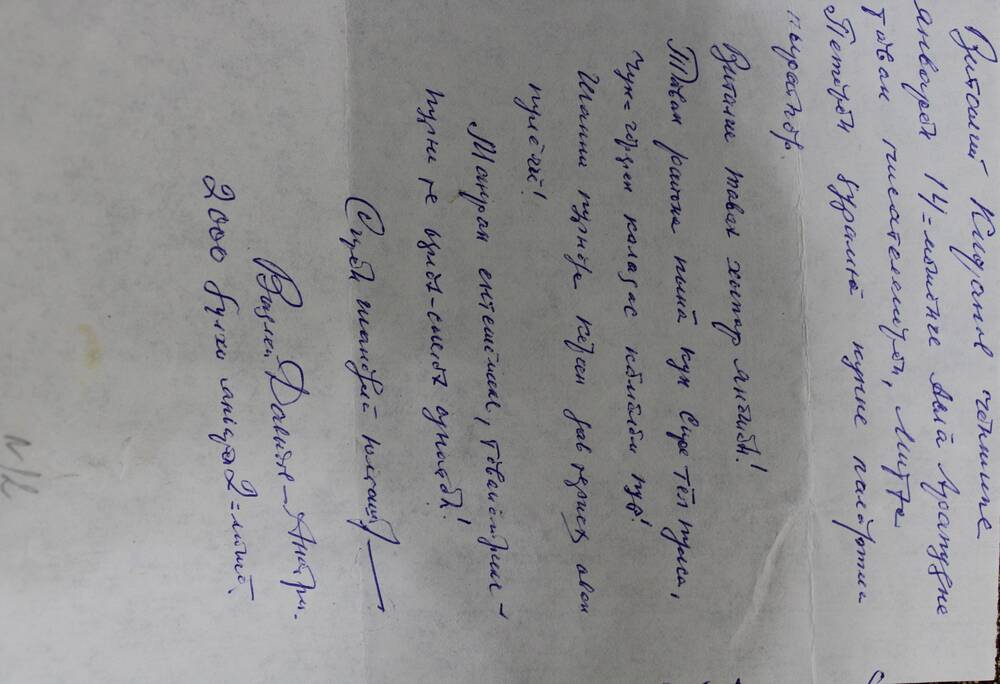 Виталий Кифанов чӗннипе
январӗн 14=мӗшӗнче Аслă Арапуҫне
тăван писателӗмӗрӗн, Митта
Петӗрӗн ҫуралнă кунне палăртма
пыратпăр.
Виталие тавах хыпар янăшăн!
Тăван районa пынă кун Сире тӗл пулса,
Чун=чӗререн калаҫас кăмăлăм пур!
Шанни пурнăҫа кӗрсен ҫав тери аван
пулӗччӗ!
Манран ентешӗмсене, тăванăмсене -
пурне те ырлăх-сывлăх сунатăп!
Сирӗн шанăҫлă юлташăр —
Ваҫлей Давыдов-Анатри.
2000 ҫулхи январӗн 2=мӗшӗ.